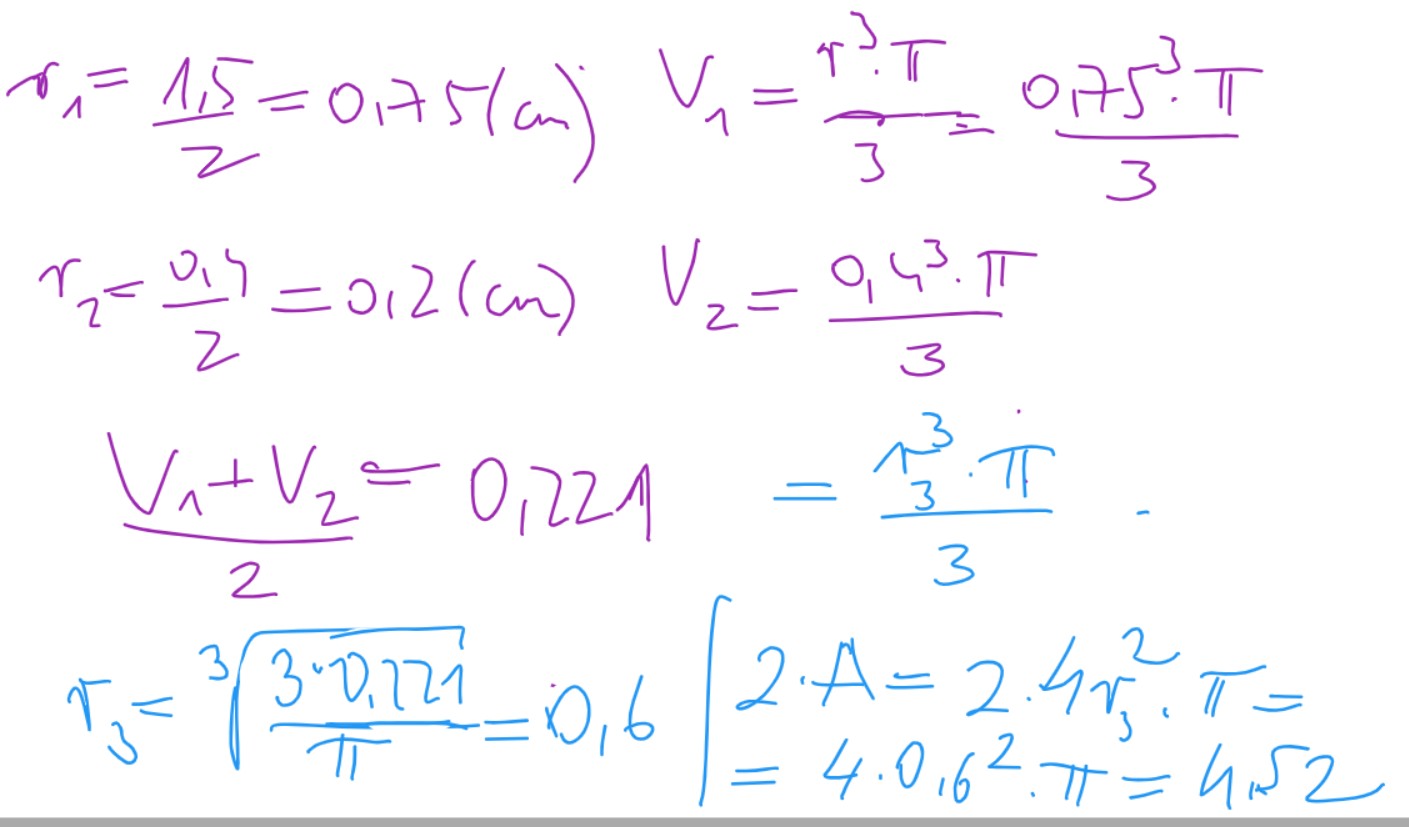 r₁ = 1,5/2 = 0,75 (cm) V₁ = r³·π/3 = 0,75³·π/3
r₂ = 0,4/2 = 0,2 (cm) V₂ = 0,4³·π/3
(V₁ + V₂)/2 = 0,221 = r₃³·π/3
r₃ = ³√(3·0,221/π) = 0,6 2·A = 2·4r₃²·π =
= 4·0,6²·π = 4,52